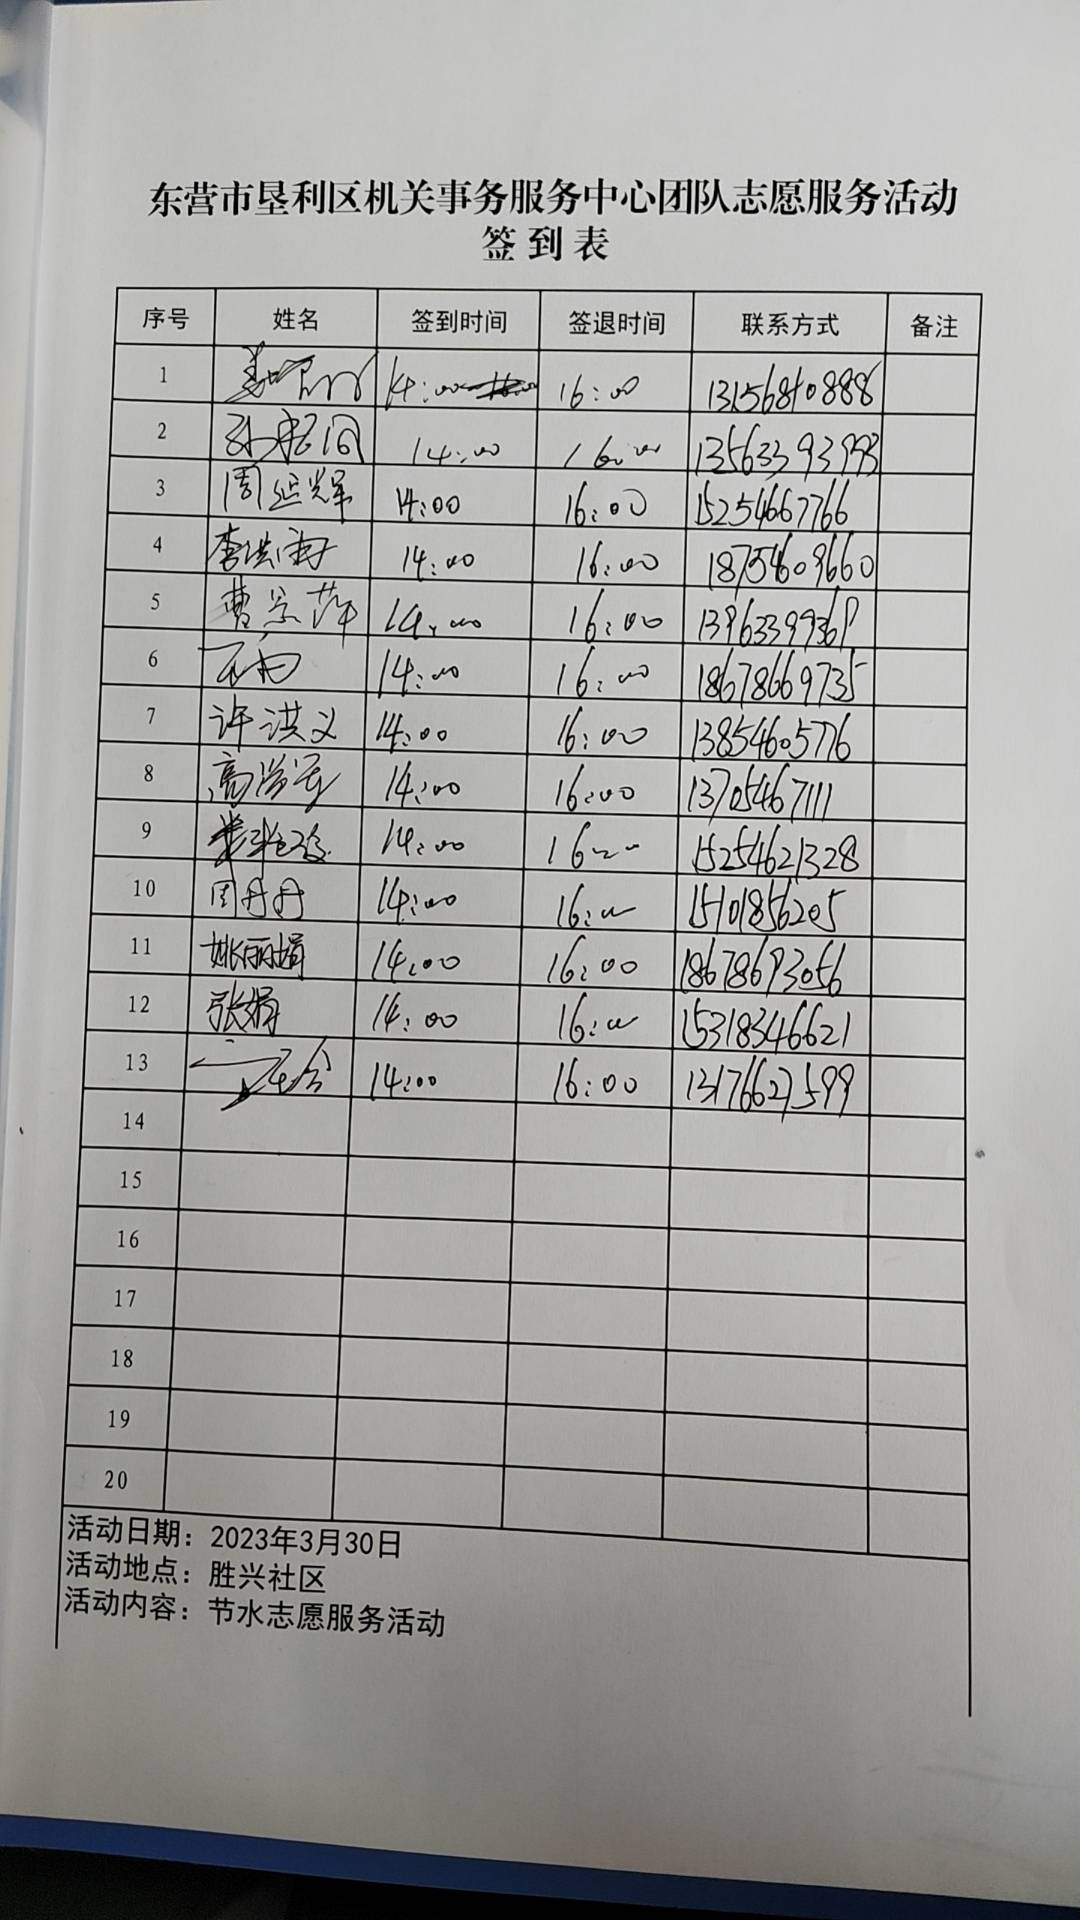 东营市垦利区机关事务服务中心团队志愿服务活动
签到表
序号 姓名 签到时间 签退时间 联系方式 备注
1 14:00 16:00 13156810888
2 14:00 16:00 13563393993
3 周延辉 14:00 16:00 15254667766
4 李洪海 14:00 16:00 18754609660
5 曹景萍 14:00 16:00
6 14:00 16:00 18678669735
7 许洪义 14:00 16:00 13854605776
8 14:00 16:00 13705467111
9 14:00 16:00 15254621328
10 周丹丹 14:00 16:00 15101856205
11 姚丽娟 14:00 16:00 18678693056
12 张娟 14:00 16:00 15318346621
13 14:00 16:00 13176627599
14
15
16
17
18
19
20
活动日期：2023年3月30日
活动地点：胜兴社区
活动内容：节水志愿服务活动